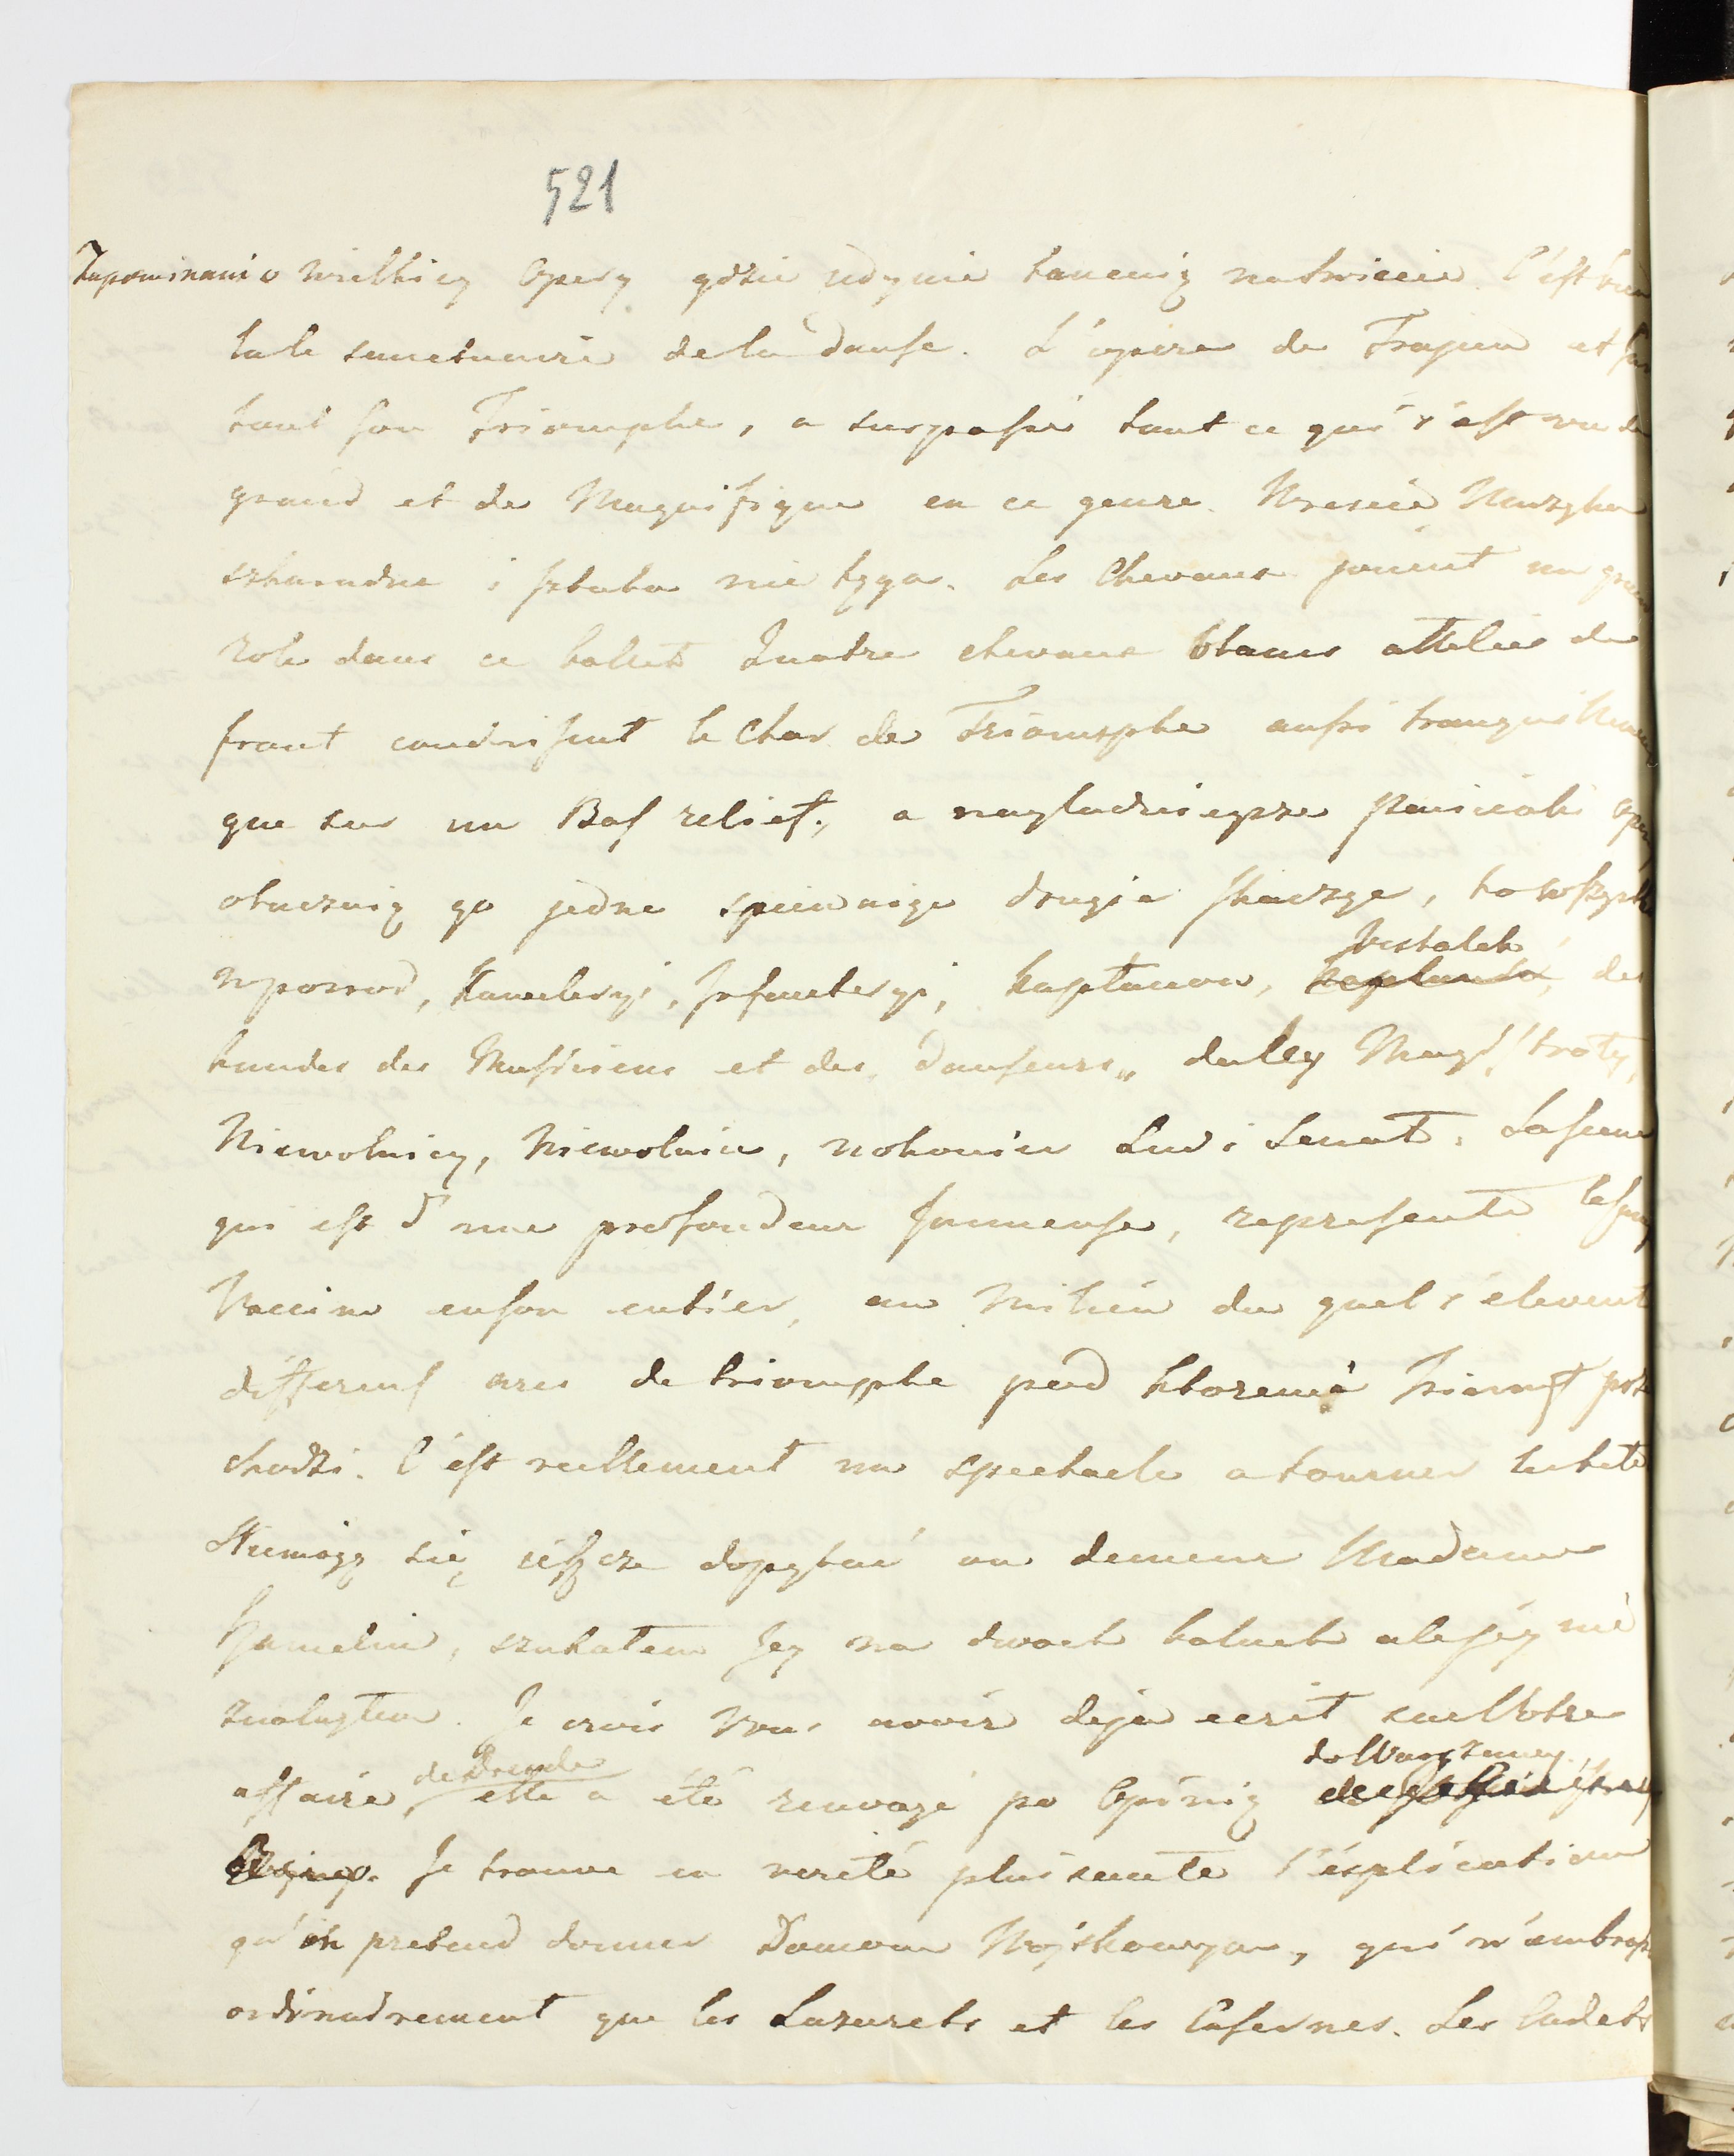 521
Zapominam o wielkiey Opery gdzie jedynie tancuią na swiecie. C'est bien
la le sanctuaire de la danse. L'opera de Trajan et sur
tout son Triomphe, a surpassé tout ce qui s'est vu de
grand et de Magnifique en ce genre. Wreście Muzyka
szkaradna i sztuka nie tęga. Les Chevaux jouent un grand
role dans ce ballet Quatre chevaux blancs attelés de
front conduisent le Char de Triomphe aussi tranquillement
que sur un Bas relief, a nayładnieysze Panienki Opery
otaczaią go jedne spiewaiąc drugie skacząc, to wszystko
wposrod, Kawaleryi, Infanteryi, kapłanow, Westalek, des
bandes des Musiciens et des Danseurs, daley Magistraty,
Niewolnicy, Niewolnice, nakoniec Lud i Senat. La scene
qui est d'une profondeur immense, represente le forum
Romain en son entier, au milieu du quel s'élevent
differens arcs de triomphe pod ktoremi Triumf prze
chodzi. C'est reellement un spectacle a tourner la tete
Niemogę się jeszcze dopytać ou demeure Madame
Hamelin, szukałem Jey na dwoch balach ale jéy nie
znalazłem. Je crois Vous avoir deja ecrit sur Votre
affaire de Dresde elle a été renvoyé po Opinią do Warszawy
Je trouve en verité plaisante l'explication
qu'on pretend donner Domom Woyskowym, qui n'embrasse
ordinairement que les Lazarets et les Casernes. Les Cadets